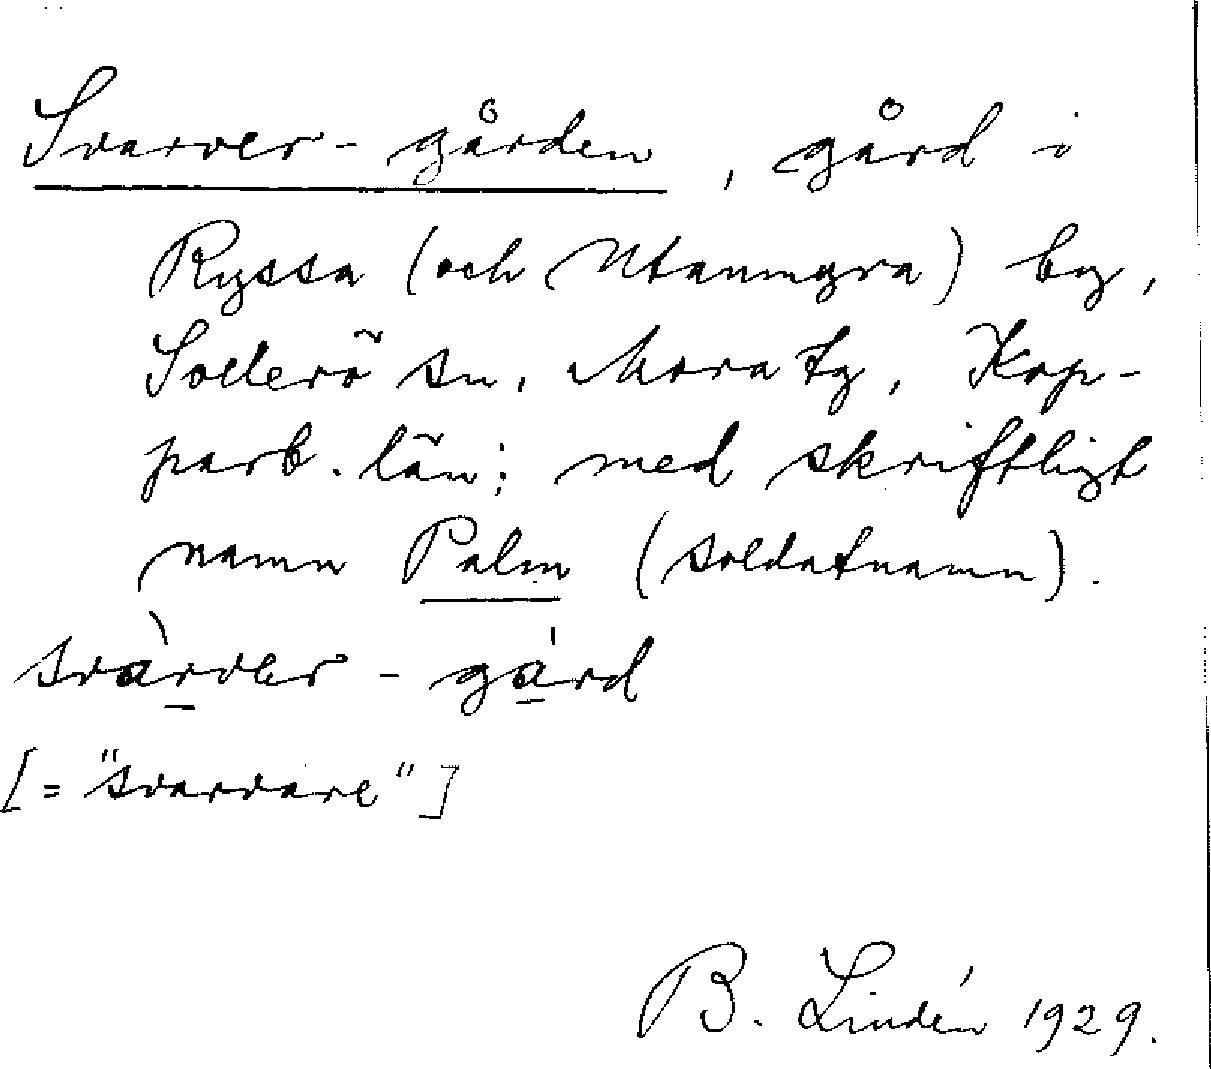 Svarver-gården, gård i
Ryssa (och Utanmyra) by,
Sollerö sn, Mora tg, Kop-
parb. län; med skriftligt
namn Palm (soldatnamn).
svàrver-gárd
[= "svarvare"]
B. Lindén 1929.